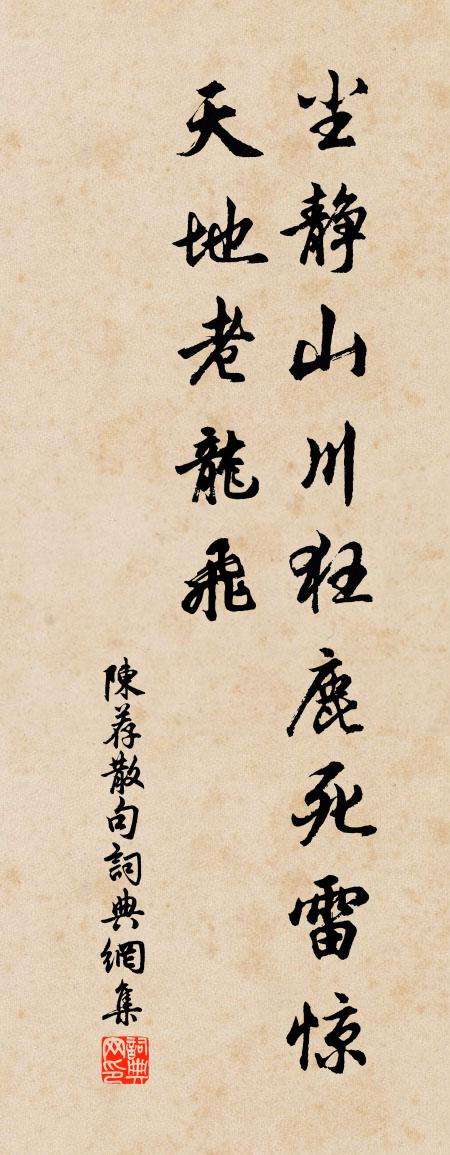 尘静山川狂鹿死雷惊
天地老龍飛
陳荐散句詞典網集
詞典网印